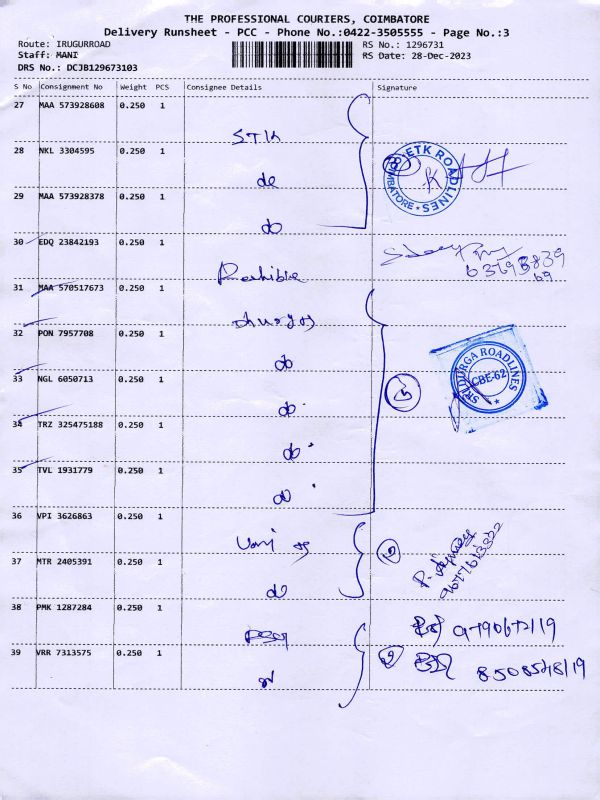 THE PROFESSIONAL COURIERS, COIMBATORE
Delivery Runsheet - PCC - Phone No.:0422-3505555 - Page No.:3
Route: IRUGURROAD
Staff: MANI
DRS No.: DCJB129673103
RS No.: 1296731
RS Date: 28-Dec-2023
S No Consignment No Weight PCS Consignee Details Signature
27 MAA 573928608 0.250 1
STK
28 NKL 3304595 0.250 1
do
29 MAA 573928378 0.250 1
do
3
ETK ROADLINES
COIMBATORE
30 EDQ 23842193 0.250 1
31 MAA 570517673 0.250 1
32 PON 7957708 0.250 1
do
33 NGL 6050713 0.250 1
do
34 TRZ 325475188 0.250 1
do
35 TVL 1931779 0.250 1
do
5
SRI DURGA ROADLINES
CBE-62
36 VPI 3626863 0.250 1
37 MTR 2405391 0.250 1
do
2
38 PMK 1287284 0.250 1
39 VRR 7313575 0.250 1
2